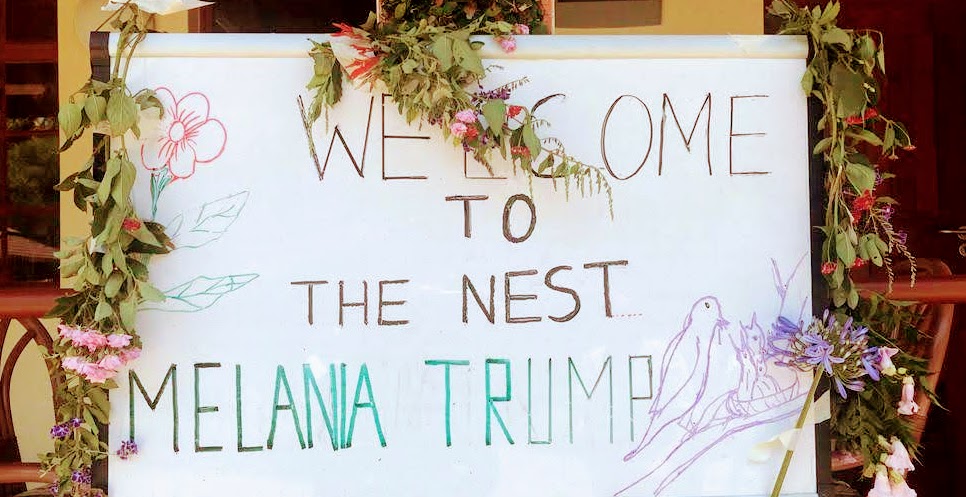 WELCOME
TO
THE NEST....
MELANIA TRUMP